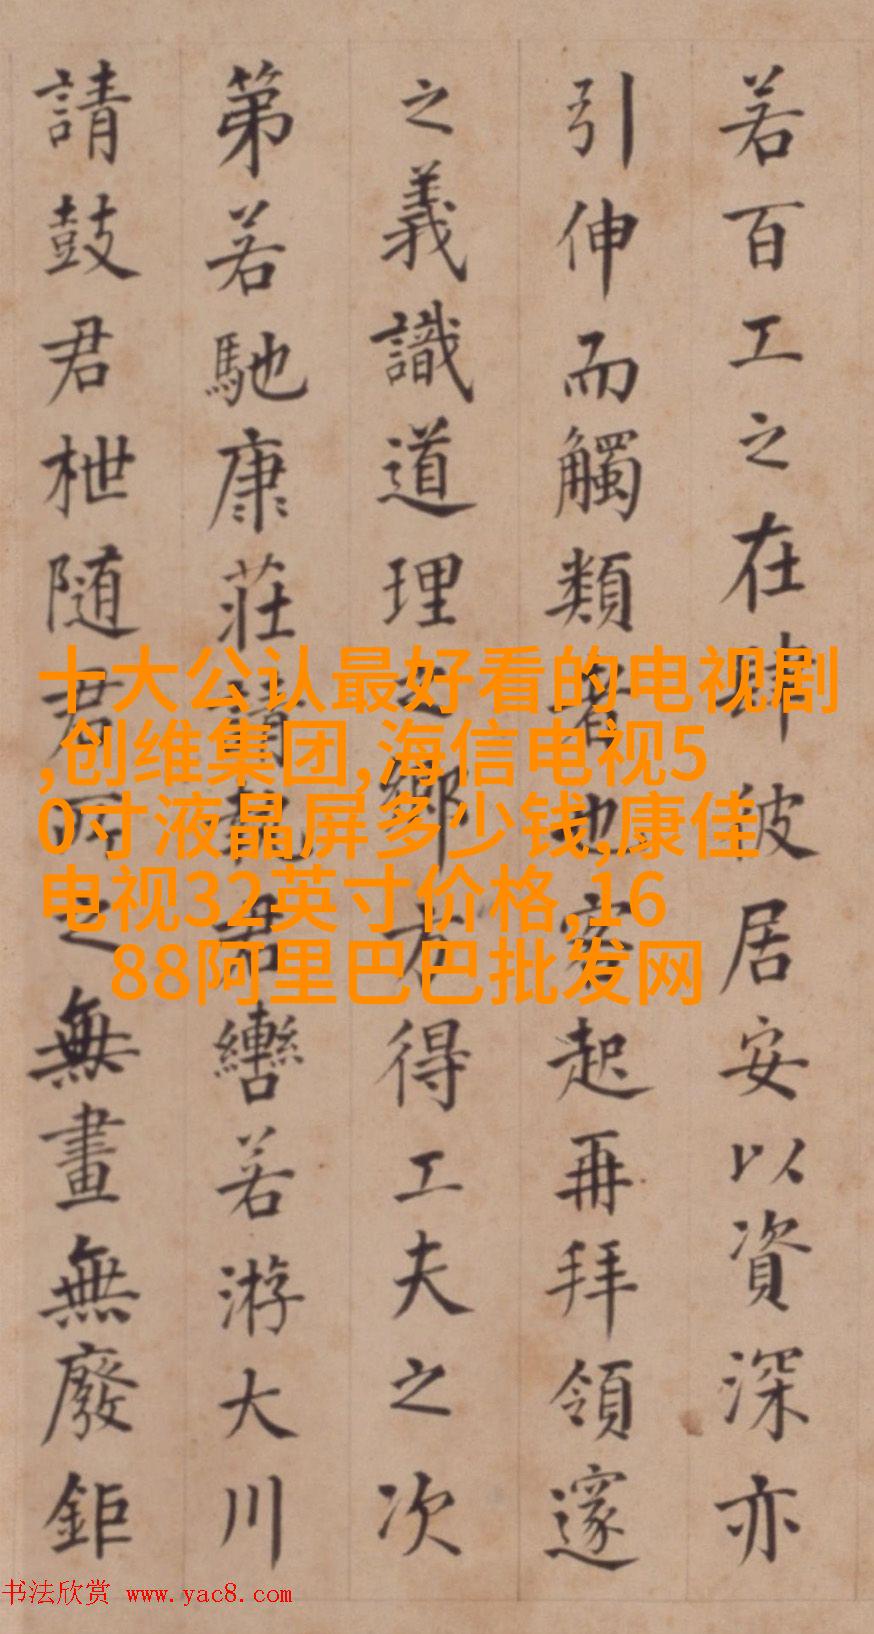 若百工之在肆彼居安以資深亦
引伸而觸類者也客起再拜領邃
之義識道理之鄉方得工夫之次
第若馳康莊請執君轡若游大川
請鼓君枻随君所之無畫無廢鉅
十大公认最好看的电视剧
,创维集团,海信电视5
0寸液晶屏多少钱,康佳
电视32英寸价格,16
88阿里巴巴批发网
书法欣赏 www.yac8.com